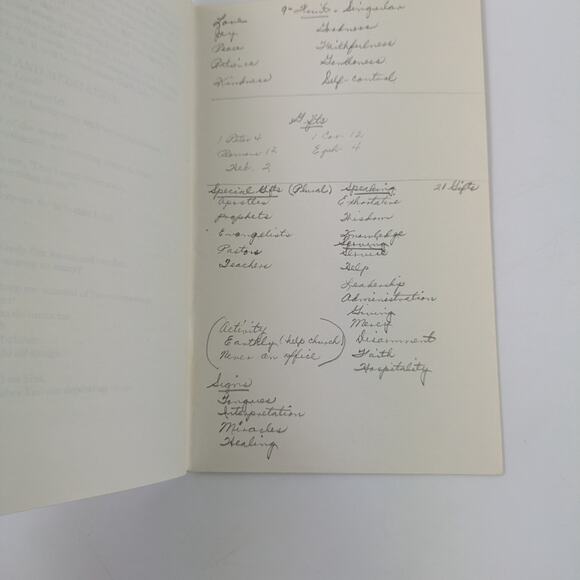 9 - Fruit - Singular
Love Goodness
Joy Faithfulness
Peace Gentleness
Patience Self-control
Kindness
Gifts
1 Peter 4 1 Cor. 12
Romans 12 Eph. 4
Heb. 2
Special Gifts (Plural) Speaking 21 Gifts
Apostles Exhortative
Prophets Wisdom
Evangelists Knowledge
Pastors Serving
Teachers Service
Help
Leadership
Administration
Giving
Mercy
Discernment
Faith
Hospitality
(Activity
Earthly (help church)
Never an office)
Signs
Tongues
Interpretation
Miracles
Healing